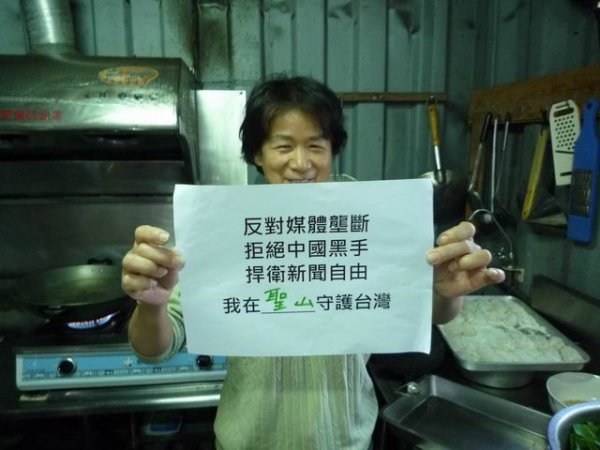 反對媒體壟斷
拒絕中國黑手
捍衛新聞自由
我在聖山守護台灣